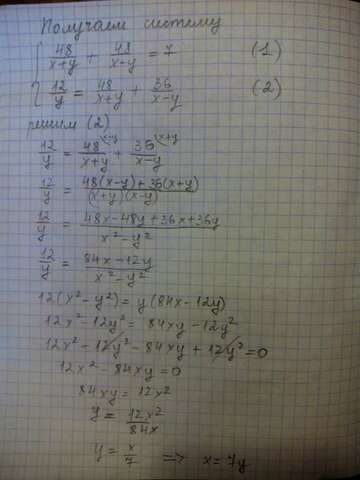 Получаем систему
{ 48/(x+y) + 48/(x-y) = 7 (1)
{ 12/y = 48/(x+y) + 36/(x-y) (2)
решим (2)
12/y = 48/(x+y) + 36/(x-y)
12/y = (48(x-y)+36(x+y))/((x+y)(x-y))
12/y = (48x-48y+36x+36y)/(x²-y²)
12/y = (84x-12y)/(x²-y²)
12(x²-y²) = y(84x-12y)
12x²-12y² = 84xy-12y²
12x²-12y²-84xy+12y²=0
12x²-84xy=0
84xy = 12x²
y = 12x²/84x
y = x/7 => x=7y